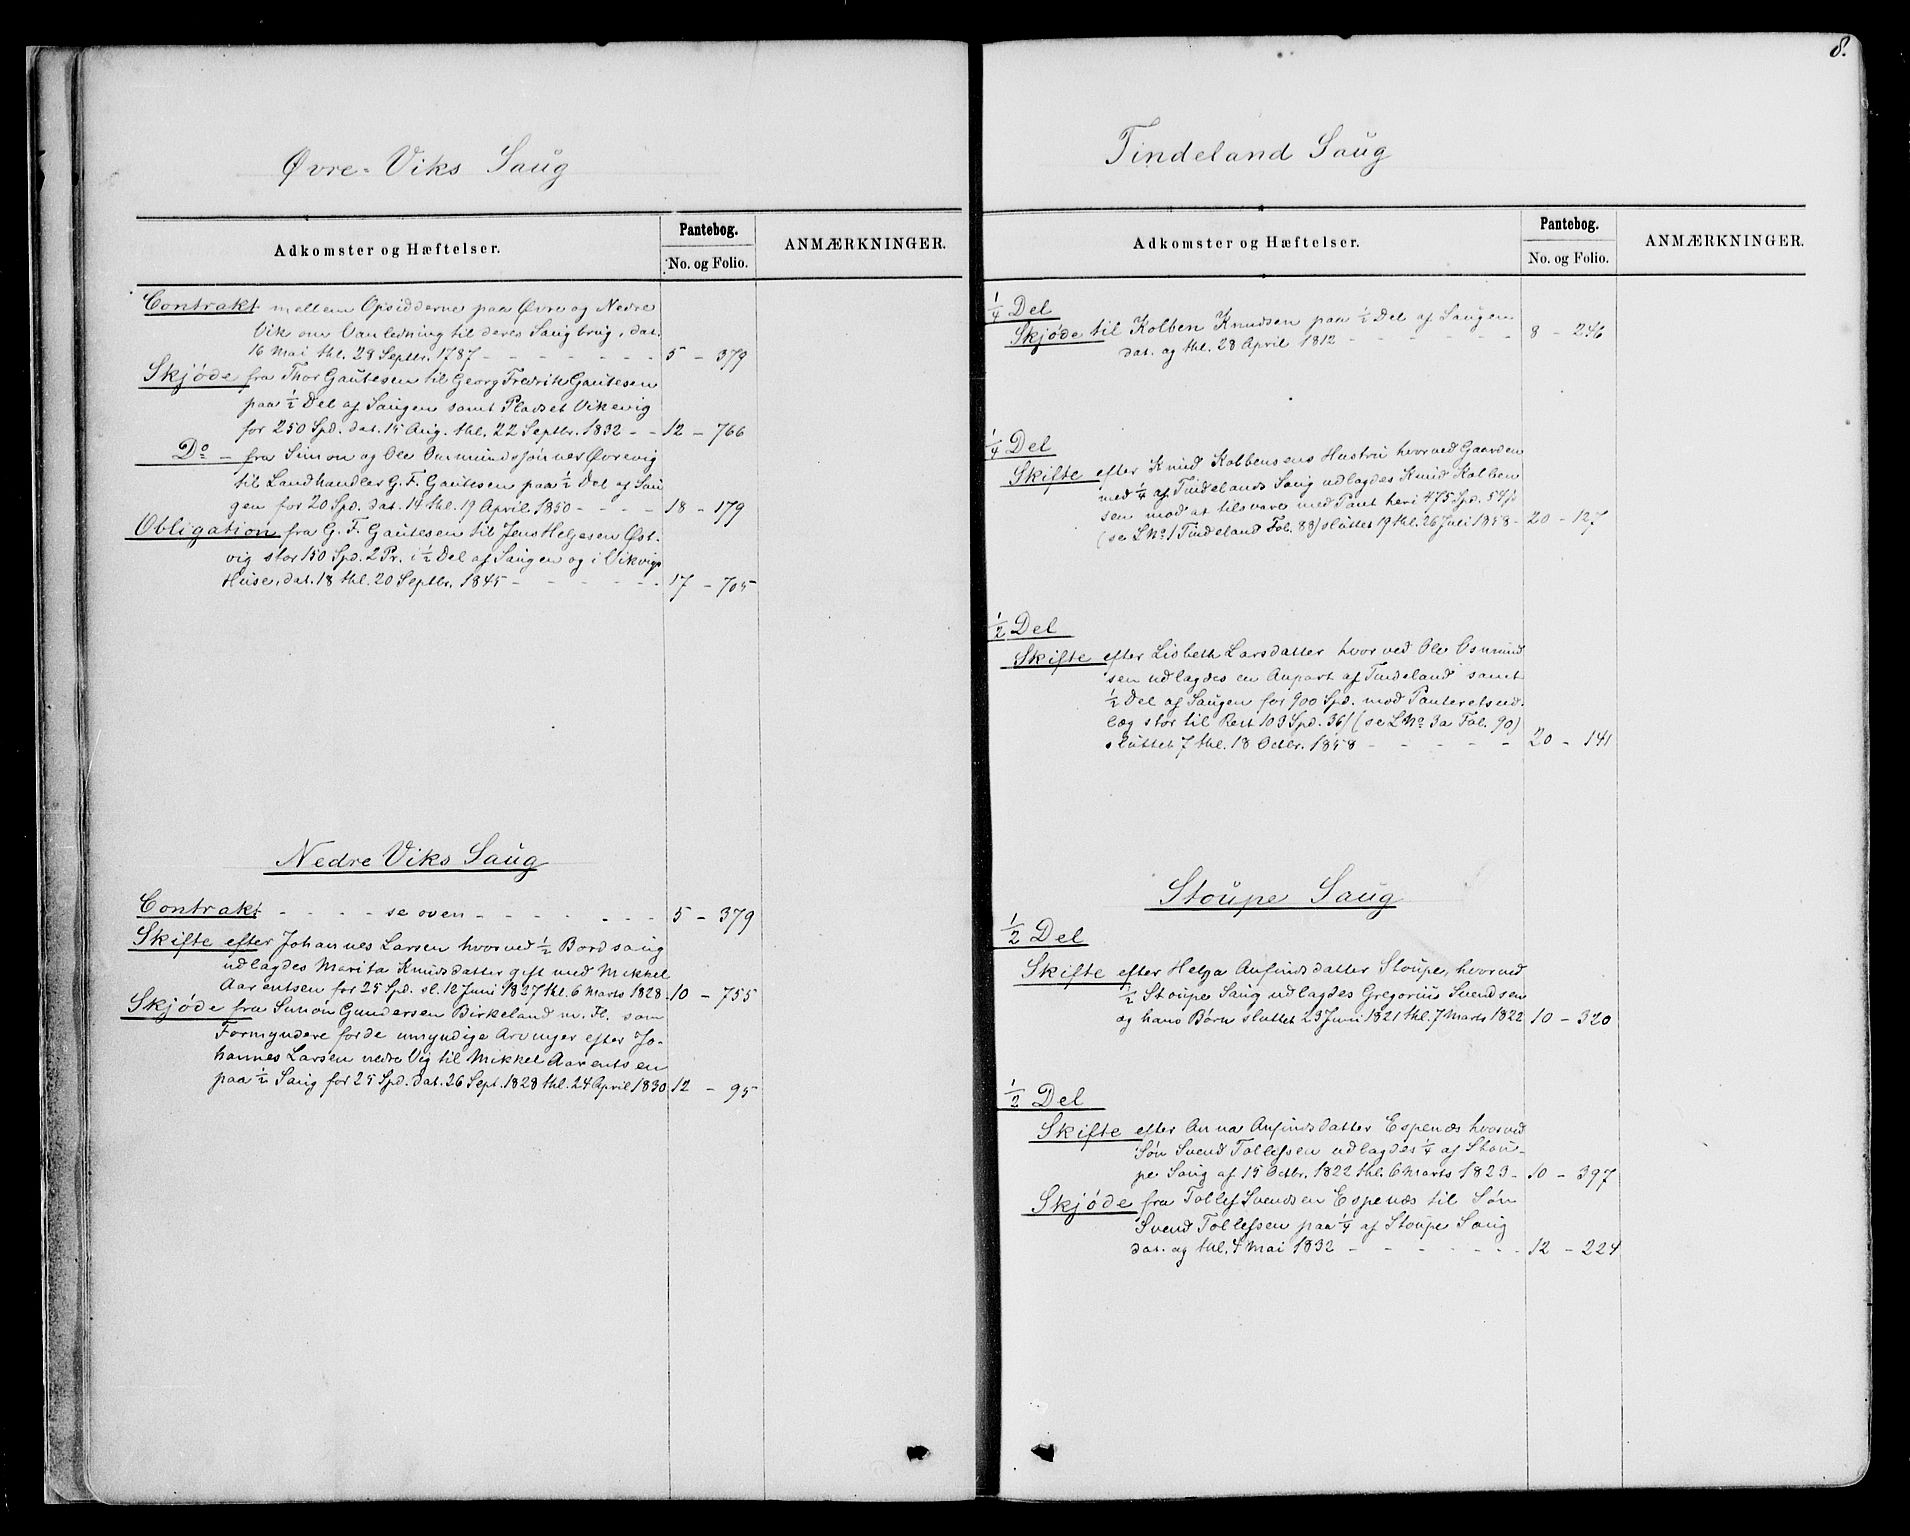 Øvre-Viks Saug
Adkomster og Hæftelser.
Pantebog.
No. og Folio.
ANMÆRKNINGER.
Contrakt mellem Opsidderne paa Øvre og Nedre
Vik om Vanledning til deres Saugbrug, dat.
16 Mai thl. 28 Septbr. 1787 - - - - - - - 5 - 379
Skjøde fra Thor Gautesen til Georg Fredrik Gautesen
paa ½ Del af Saugen samt Pladset Vikevig
for 250 Spd. dat. 15 Aug. thl. 22 Septbr. 1832 - - 12 - 766
Do - fra Simon og Ole Osmundssønner Øvrevig
til Landhandler G. F. Gautesen paa ½ Del af Sau
gen for 20 Spd. dat. 14 thl. 19 April 1850 - - - - 18 - 179
Obligation fra G. F. Gautesen til Jens Helgesen Øst-
vig stor 150 Spd. 2 Pr. i ½ Del af Saugen og i Vikvigs
Huse, dat. 18 thl. 20 Septbr. 1845 - - - - - - - 17 - 705
Nedre Viks Saug
Contrakt - - - - se oven - - - - - - - 5 - 379
Skifte efter Johannes Larsen hvorved ½ Bordsaug
udlagdes Marita Knudsdatter gift med Mikkel
Aarentsen for 25 Spd. sl. 12 Juni 1827 thl. 6 Marts 1828. 10 - 755
Skjøde fra Simon Gundersen Birkeland m. Fl. som
Formyndere for de umyndige Arvinger efter Jo-
hannes Larsen nedre Vig til Mikkel Aarentsen
paa ½ Saug for 25 Spd. dat. 26 Sept. 1828 thl. 24 April 1830 12 - 95
8.
Tindeland Saug
Adkomster og Hæftelser.
Pantebog.
No. og Folio.
ANMÆRKNINGER.
¼ Del
Skjøde til Kolben Knudsen paa ½ Del af Saugen
dat. og thl. 28 April 1812 - - - - - - - 8 - 246
¼ Del
Skifte efter Knud Kolbensens Hustru hvorved Gaarden
med ¼ af Tindelands Saug udlagdes Knud Kolben
sen mod at tilsvare med Pant heri 475 Spd. 54ß
(se LNo 1 Tindeland Fol. 88) sluttet 19 thl. 26 Juli 1858 - 20 - 127
½ Del
Skifte efter Lisbeth Larsdatter hvorved Ole Osmund
sen udlagdes en Anpart af Tindeland samt
½ Del af Saugen for 900 Spd. mod Panteretsud-
læg stor til Rest 103 Spd. 36ß (se LNo 3a Fol. 90)
sluttet 7 thl. 18 Octbr. 1858 - - - - - 20 - 141
Stoupe Saug
½ Del
Skifte efter Helga Anfindsdatter Stoupe, hvorved
½ Stoupe Saug udlagdes Gregorius Svendsen
og hans Børn sluttet 23 Juni 1821 thl. 7 Marts 1822 10 - 320
½ Del
Skifte efter Anna Anfindsdatter Espenæs hvorved
Søn Svend Tollefsen udlagdes ¼ af Stou-
pe Saug af 15 Octbr. 1822 thl. 6 Marts 1823 - 10 - 397
Skjøde fra Tollef Svendsen Espenæs til Søn
Svend Tollefsen paa ¼ af Stoupe Saug
dat. og thl. 4 Mai 1832 - - - - - - - 12 - 224